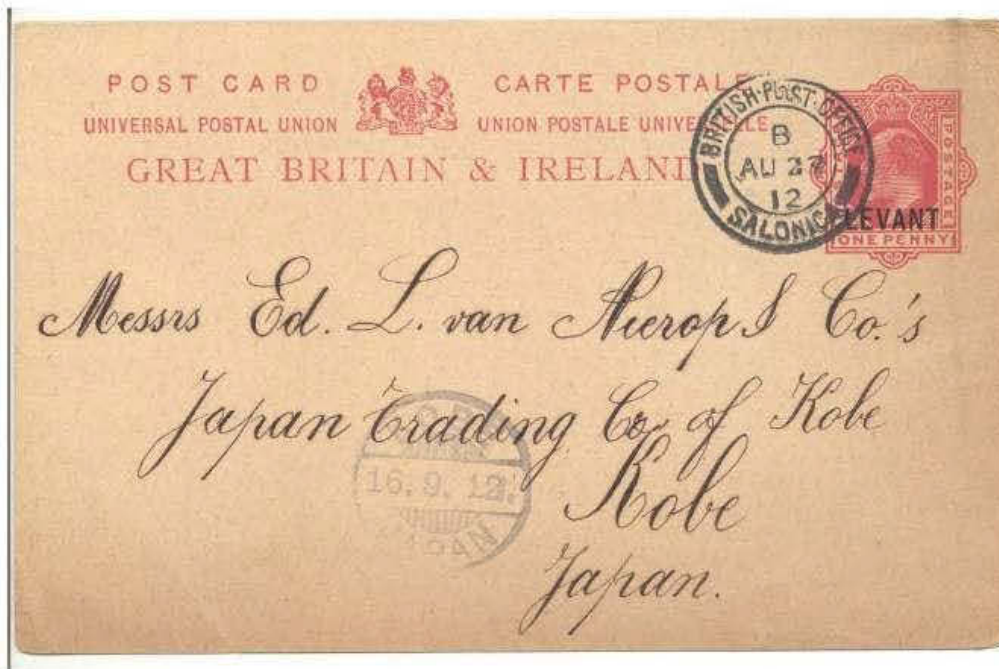 POST CARD CARTE POSTALE
UNIVERSAL POSTAL UNION UNION POSTALE UNIVERSELLE
GREAT BRITAIN & IRELAND
BRITISH·POST·OFFICE
B
AU 27
12
SALONICA
POSTAGE
LEVANT
ONE PENNY
Messrs Ed. L. van Nierop & Co.'s
Japan Trading Co. of Kobe
Kobe
Japan.
16.9.12.
JAPAN